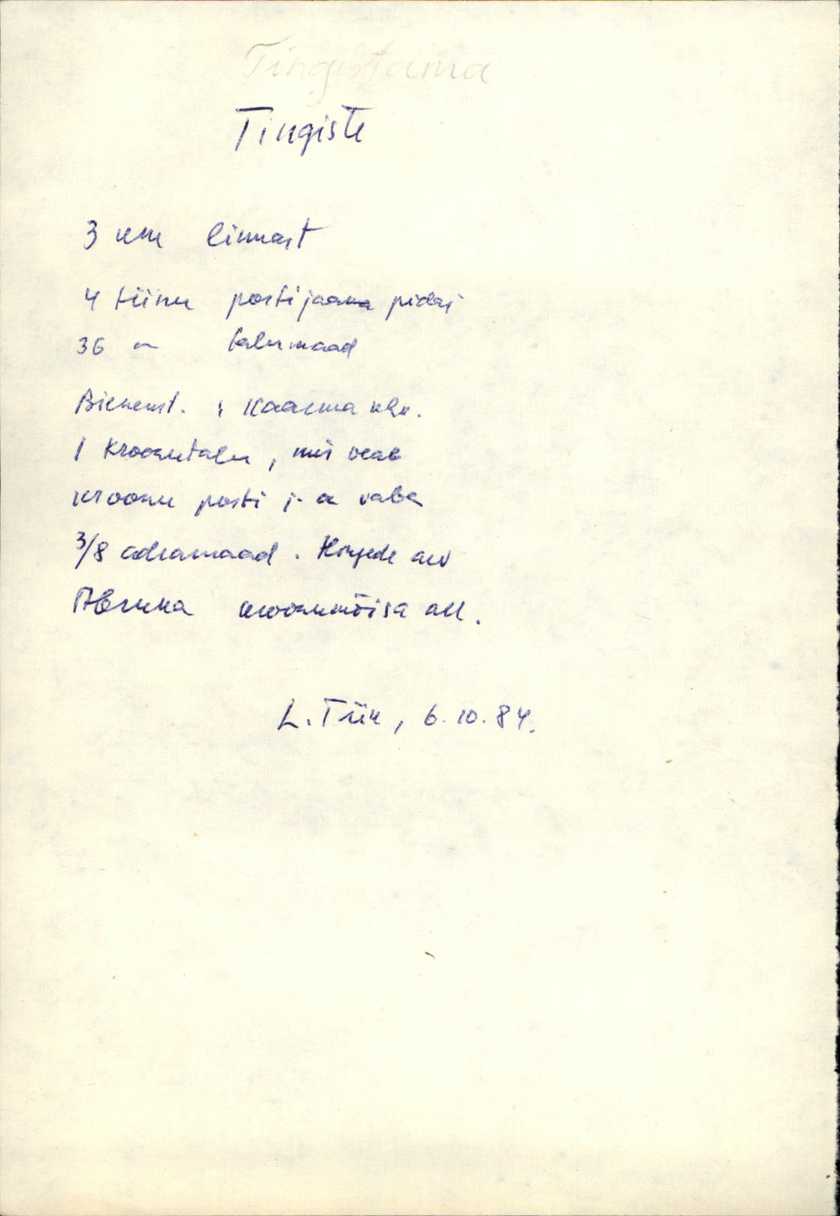 Tingistama
Tingiste
3 km linnast
4 tiinu postijaama pidaj
36 " talumaad
Bienemst. : Kaarma khk.
1 kroonutalu, mis veab
kroonu posti j. a vaba
3/8 adramaad. Kirjade
Abruka kroonumõisa all.
L. Tiik, 6.10.84.